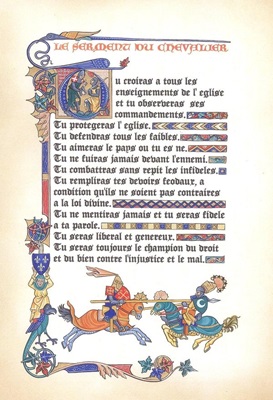 LE SERMENT DU CHEVALIER
Tu croiras a tous les
enseignements de l'eglise
et tu observeras ses
commandements.
Tu protegeras l'eglise.
Tu defendras tous les faibles.
Tu aimeras le pays ou tu es ne.
Tu ne fuiras jamais devant l'ennemi.
Tu combattras sans repit les infideles.
Tu rempliras tes devoirs feodaux, a
condition qu'ils ne soient pas contraires
a la loi divine.
Tu ne mentiras jamais et tu seras fidele
a ta parole.
Tu seras liberal et genereux.
Tu seras toujours le champion du droit
et du bien contre l'injustice et le mal.